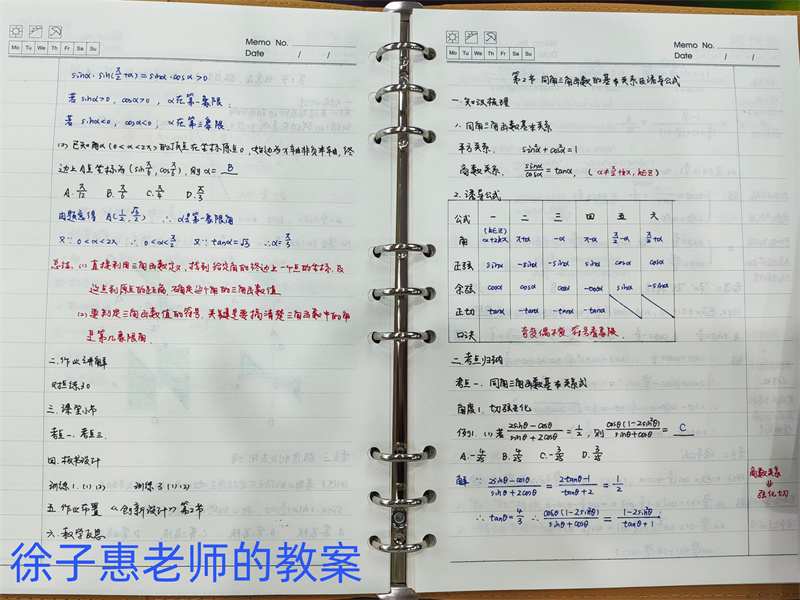 Memo No.
Mo Tu We Th Fr Sa Su
Date / /
sinα·sin(π/2+α)=sinα·cosα>0
若sinα>0, cosα>0, α在第一象限;
若sinα<0, cosα<0, α在第三象限.
(2) 已知角α(0<α<2π)的顶点在坐标原点O, 始边为x轴非负半轴, 终
边上A点坐标为(sinπ/6, cosπ/6), 则α= B
A. π/12 B. π/6 C. π/4 D. π/3
由题意得 A(1/2, √3/2) ∴α是第一象限角
又∵0<α<2π ∴0<α<π/2 又∵tanα=√3 ∴α=π/3
总结: (1) 直接利用三角函数定义, 找到给定角的终边上一个点的坐标, 及
这点到原点的距离, 确定这个角的三角函数值
(2) 要判定三角函数值的符号, 关键是要搞清楚三角函数中的角
是第几象限角.
二. 作业讲解
三. 课堂小节
考点一. 考点三.
四. 板书设计
训练1. (1) (2) 训练3 (1) (2)
五. 作业布置 《创新设计》第2节
六. 教学反思
徐子惠老师的教案
Memo No.
Mo Tu We Th Fr Sa Su
Date / /
第2节 同角三角函数的基本关系及诱导公式
一. 知识梳理
1. 同角三角函数基本关系
平方关系: sin²α+cos²α=1
商数关系: sinα/cosα=tanα. (α≠π/2+kπ, k∈Z)
2. 诱导公式
公式 一 二 三 四 五 六
角 (k∈Z) α+2kπ π+α -α π-α π/2-α π/2+α
正弦 sinα -sinα -sinα sinα cosα cosα
余弦 cosα -cosα cosα -cosα sinα -sinα
正切 tanα tanα -tanα -tanα
口诀 奇变偶不变 符号看象限.
二. 考点归纳
考点一. 同角三角函数基本关系式
角度1. 切弦互化
例1. (1) 若 (2sinθ-cosθ)/(sinθ+2cosθ)=1/2, 则 cosθ(1-2sin²θ)/(sinθ+cosθ)= C
A. -4/25 B. 4/25 C. -3/25 D. 3/25
解 ∵ (2sinθ-cosθ)/(sinθ+2cosθ)=(2tanθ-1)/(tanθ+2)=1/2
∴tanθ=4/3 ∴ cosθ(1-2sin²θ)/(sinθ+cosθ)=(1-2sin²θ)/(tanθ+1)
商数关系
⇓
弦化切